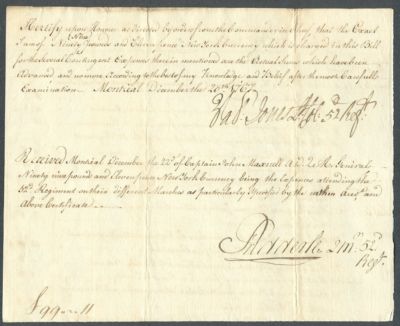 I Certify upon Honour as directed by order from the Commander in Chief, that the Exact
Sum of Ninety Nine Pounds and Eleven pence New York Currency which is charged in this Bill
for the several Contingent Expences therein mentioned are the Actual Sums which have been
Advanced and no more According to the best of my Knowledge and Belief after the most Carefull
Examination. Montreal December the 20th 1767
Jones 52d Regt.
Received Montreal December the 22d of Captain John Maxwell General
Ninety nine pound and Eleven pence New York Currency being the Expences attending the
52d Regiment on their different Marches as particularly Specified by the within Acct. and
Above Certificate
52d
Regt.
£99 .. 11